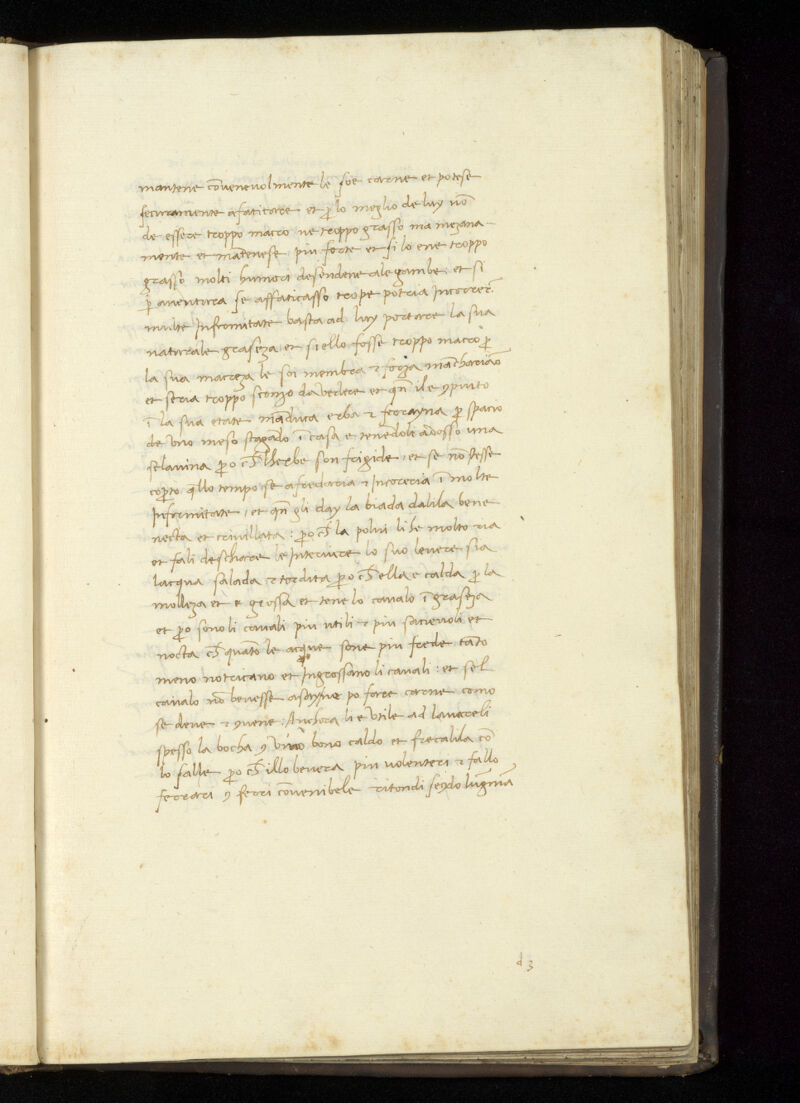 mantene cōvenevolmente le soe carne et potese
securamente afaticare et ꝑ lo meglio de luy nō
de essere troppo macro ne troppo grasso ma mezana-
mente et mātenese piu forte et si lo ene troppo
grasso molti humori desendene ale gambe et si
ꝑ auentura se affaticasso trope potria Incorrer
multe Infirmitate basta ad luy portare la sua
naturale graseza et si ello fosse troppo macro ꝑ
la sua macreza le soi membra & forza mācharião
et seria troppo sconzo da vedere et qñ il e 9piuto
ī la sua etate māduca erba & ferrayna ꝑ spacio
de vno meso stagādo ī casa e tenēdoli adosso una
selavina ꝑo ch̄ lherbe son frigide et se nō stesse
coꝑto q̄llo tempo se afredaria & Incoreria ī molte
Infirmitate et qñ gli day la biada dalila bene
necta et crivillata : ꝑo ch̄ la polui li he molto ria
et fali deschare le Interiure lo suo bevere sia
lacqua salada & tordita ꝑo ch̄ ella e calda ꝑ la
molleza et e grossa et tene lo cavalo ī graseza
et ꝑo sono li cavali piu utili & piu sacievoli et
nocta ch̄ quāto le acque sone piu frede tāto
meno notricano et Ingrossano li cavali : et sel
cavalo nō bevesse asayno po fare carne como
se deve & 9vene : Anchora li e utile ad lavareli
spesso la bocha 9 vino bono caldo et frecalila cō
lo salle ꝑo ch̄ illo bevera piu volenteri & fallo
ferrari 9 ferri cōvenibele ritondi
d 3